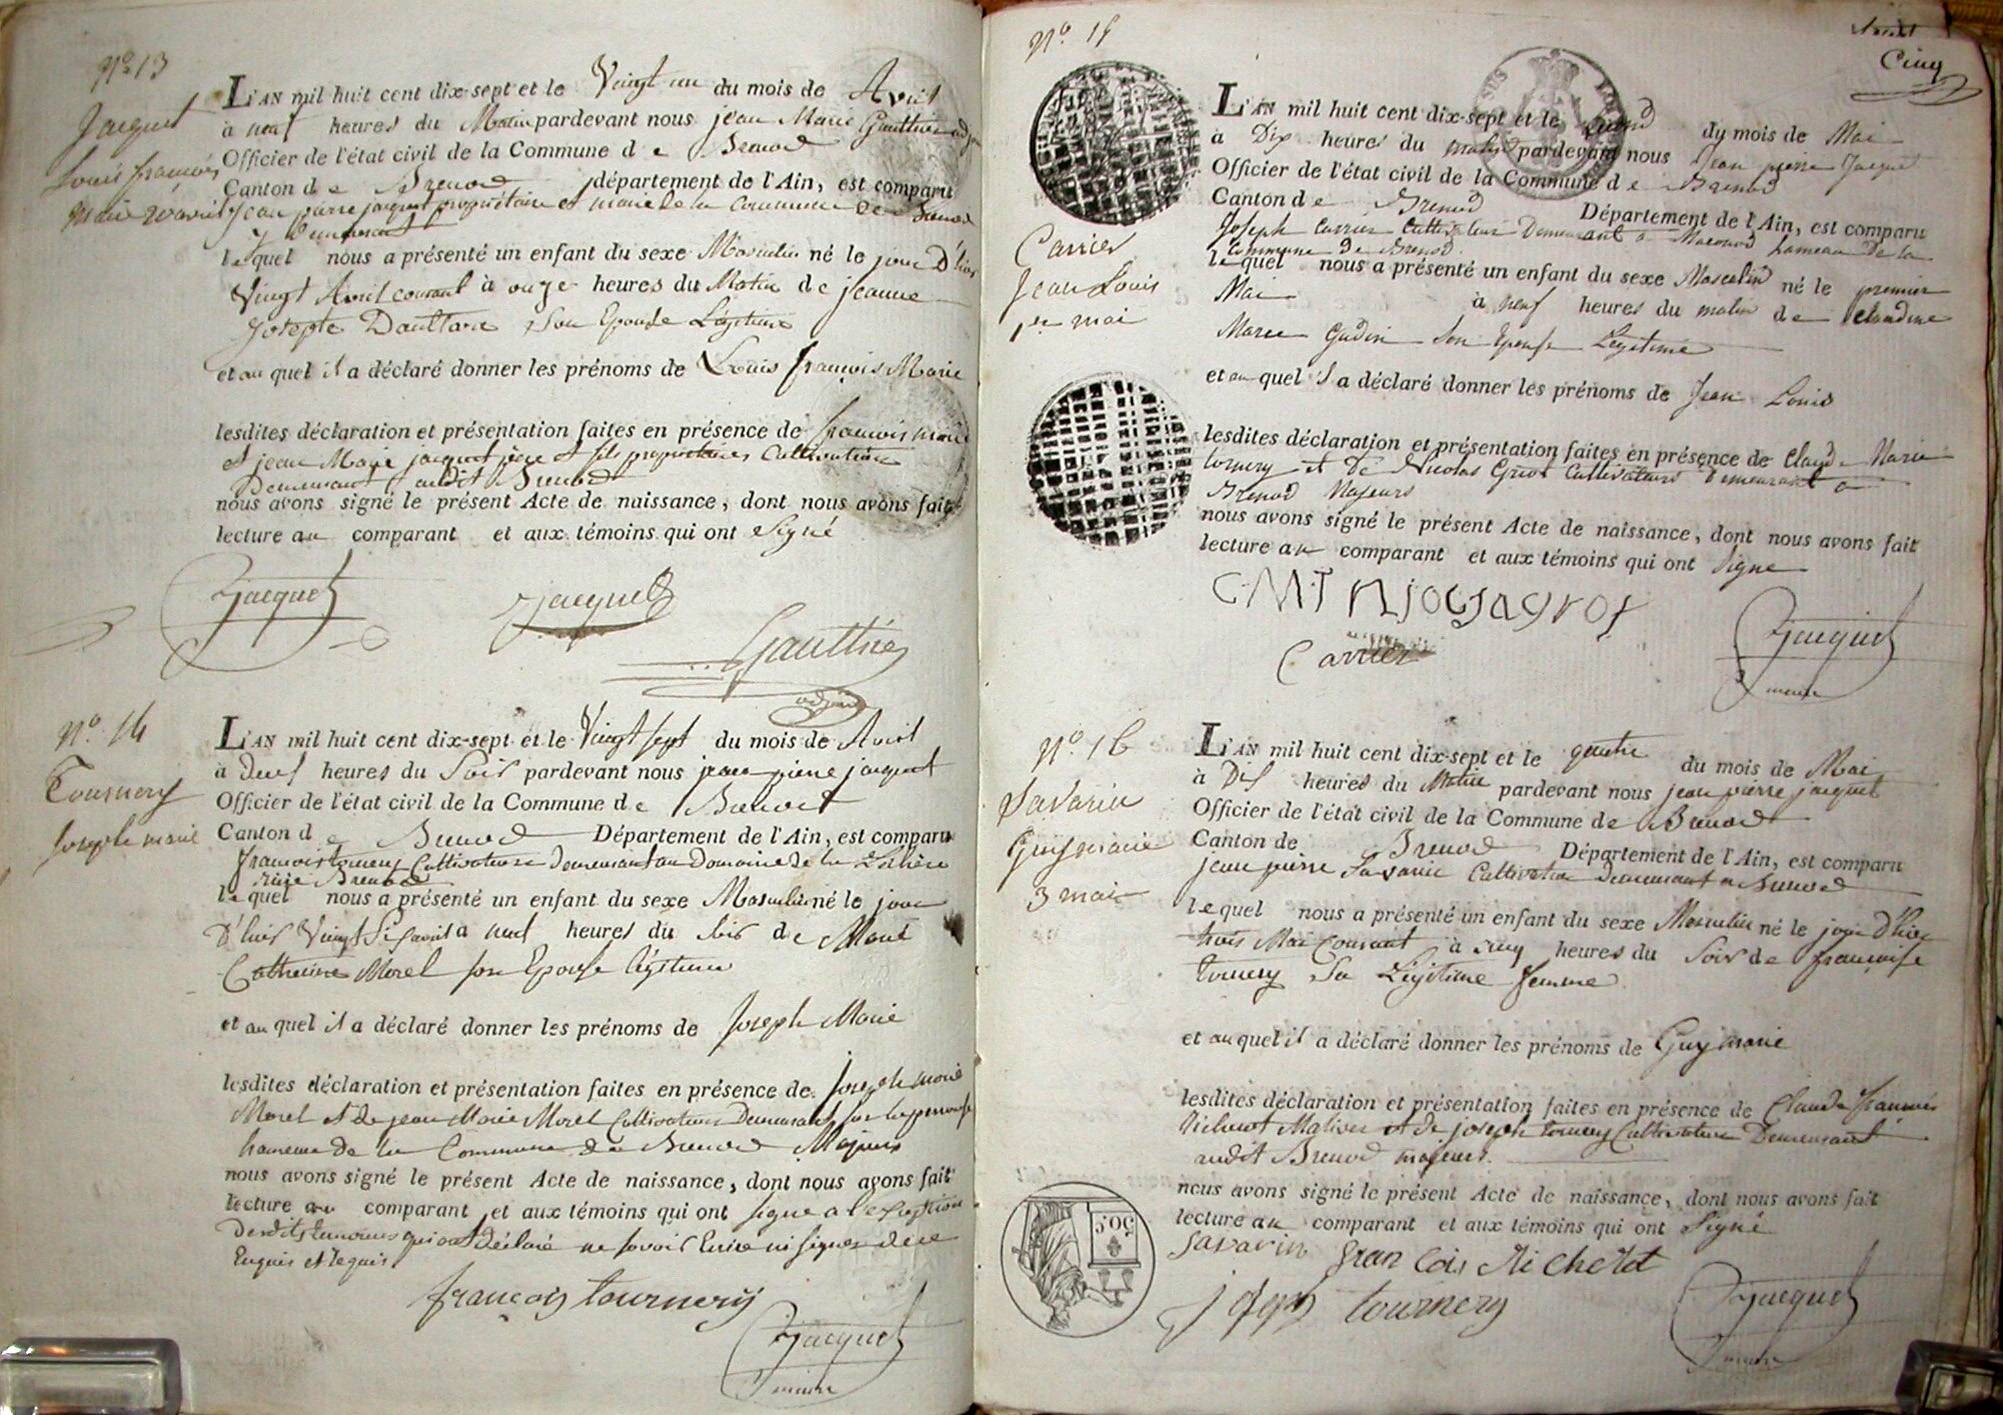 N.o 13
Jacquet
Louis françois
Marie 20 avril
L'AN mil huit cent dix-sept et le Vingt un du mois de Avril
à neuf heures du Matin pardevant nous jean Marie Gauthier adjoint
Officier de l'état civil de la Commune de Brenod
Canton de Brenod département de l'Ain, est comparu
Jean pierre jacquet propriétaire et maire de la Commune de Brenod
y Demeurant
lequel nous a présenté un enfant du sexe Masculin né le jour D'hier
Vingt Avril courant à onze heures du Matin de jeanne
Josephe Son Epouse Légitime
et auquel il a déclaré donner les prénoms de Louis françois Marie
lesdites déclaration et présentation faites en présence de françois marie
et jean Marie jacquet père et fils propriétaires Cultivateurs
Demeurant audit Brenod
nous avons signé le présent Acte de naissance, dont nous avons fait
lecture au comparant et aux témoins qui ont Signé
Jacquet
Jacquet
Gauthier
adjoint
N.o 14
Tournery
Joseph marie
L'AN mil huit cent dix-sept et le Vingt sept du mois de Avril
à heures du Soir pardevant nous jean pierre jacquet
Officier de l'état civil de la Commune de Brenod
Canton de Brenod Département de l'Ain, est comparu
françois tournery Cultivateur Demeurant au Domaine de la
Brenod
lequel nous a présenté un enfant du sexe Masculin né le jour
D'hier Vingt Six avril à neuf heures du soir de Marie
Catherine Morel son Epouse légitime
et auquel il a déclaré donner les prénoms de Joseph Marie
lesdites déclaration et présentation faites en présence de Joseph marie
Morel et de jean Marie Morel Cultivateurs Demeurants sur
hameau de la Commune de Brenod Majeurs
nous avons signé le présent Acte de naissance, dont nous avons fait
lecture au comparant et aux témoins qui ont signé a l'exception
Desdits temoins qui ont déclaré ne savoir Ecrire ni signer de ce
Enquis et Requis
françois tournery
Jacquet
maire
N.o 15
Cinq
Carrier
Jean Louis
1er mai
L'AN mil huit cent dix-sept et le second du mois de Mai
à Dix heures du matin pardevant nous Jean pierre Jacquet
Officier de l'état civil de la Commune de Brenod
Canton de Brenod Département de l'Ain, est comparu
Joseph Carrier Cultivateur Demeurant a hameau De la
Commune de Brenod
lequel nous a présenté un enfant du sexe Masculin né le premier
Mai à neuf heures du matin de Claudine
Marie Gudin Son Epouse Légitime
et auquel il a déclaré donner les prénoms de Jean Louis
lesdites déclaration et présentation faites en présence de Claude Marie
tornery et De Nicolas Cultivateurs Demeurant a
Brenod Majeurs
nous avons signé le présent Acte de naissance, dont nous avons fait
lecture au comparant et aux témoins qui ont signé
CMT
Carrier
Jacquet
maire
N.o 16
Savarin
Guy marie
3 mai
L'AN mil huit cent dix-sept et le quatre du mois de Mai
à Dix heures du Matin pardevant nous jean pierre jacquet
Officier de l'état civil de la Commune de Brenod
Canton de Brenod Département de l'Ain, est comparu
jean pierre Savarin Cultivateur Demeurant a Brenod
lequel nous a présenté un enfant du sexe Masculin né le jour d'hier
trois Mai Courant à cinq heures du Soir de françoise
tornery Sa Légitime femme
et auquel il a déclaré donner les prénoms de Guy marie
lesdites déclaration et présentation faites en présence de Claude françois
Richerot et de joseph tornery Cultivateurs Demeurant
audit Brenod majeurs
nous avons signé le présent Acte de naissance, dont nous avons fait
lecture au comparant et aux témoins qui ont Signé
Savarin
joseph tournery
Jacquet
maire
50.c